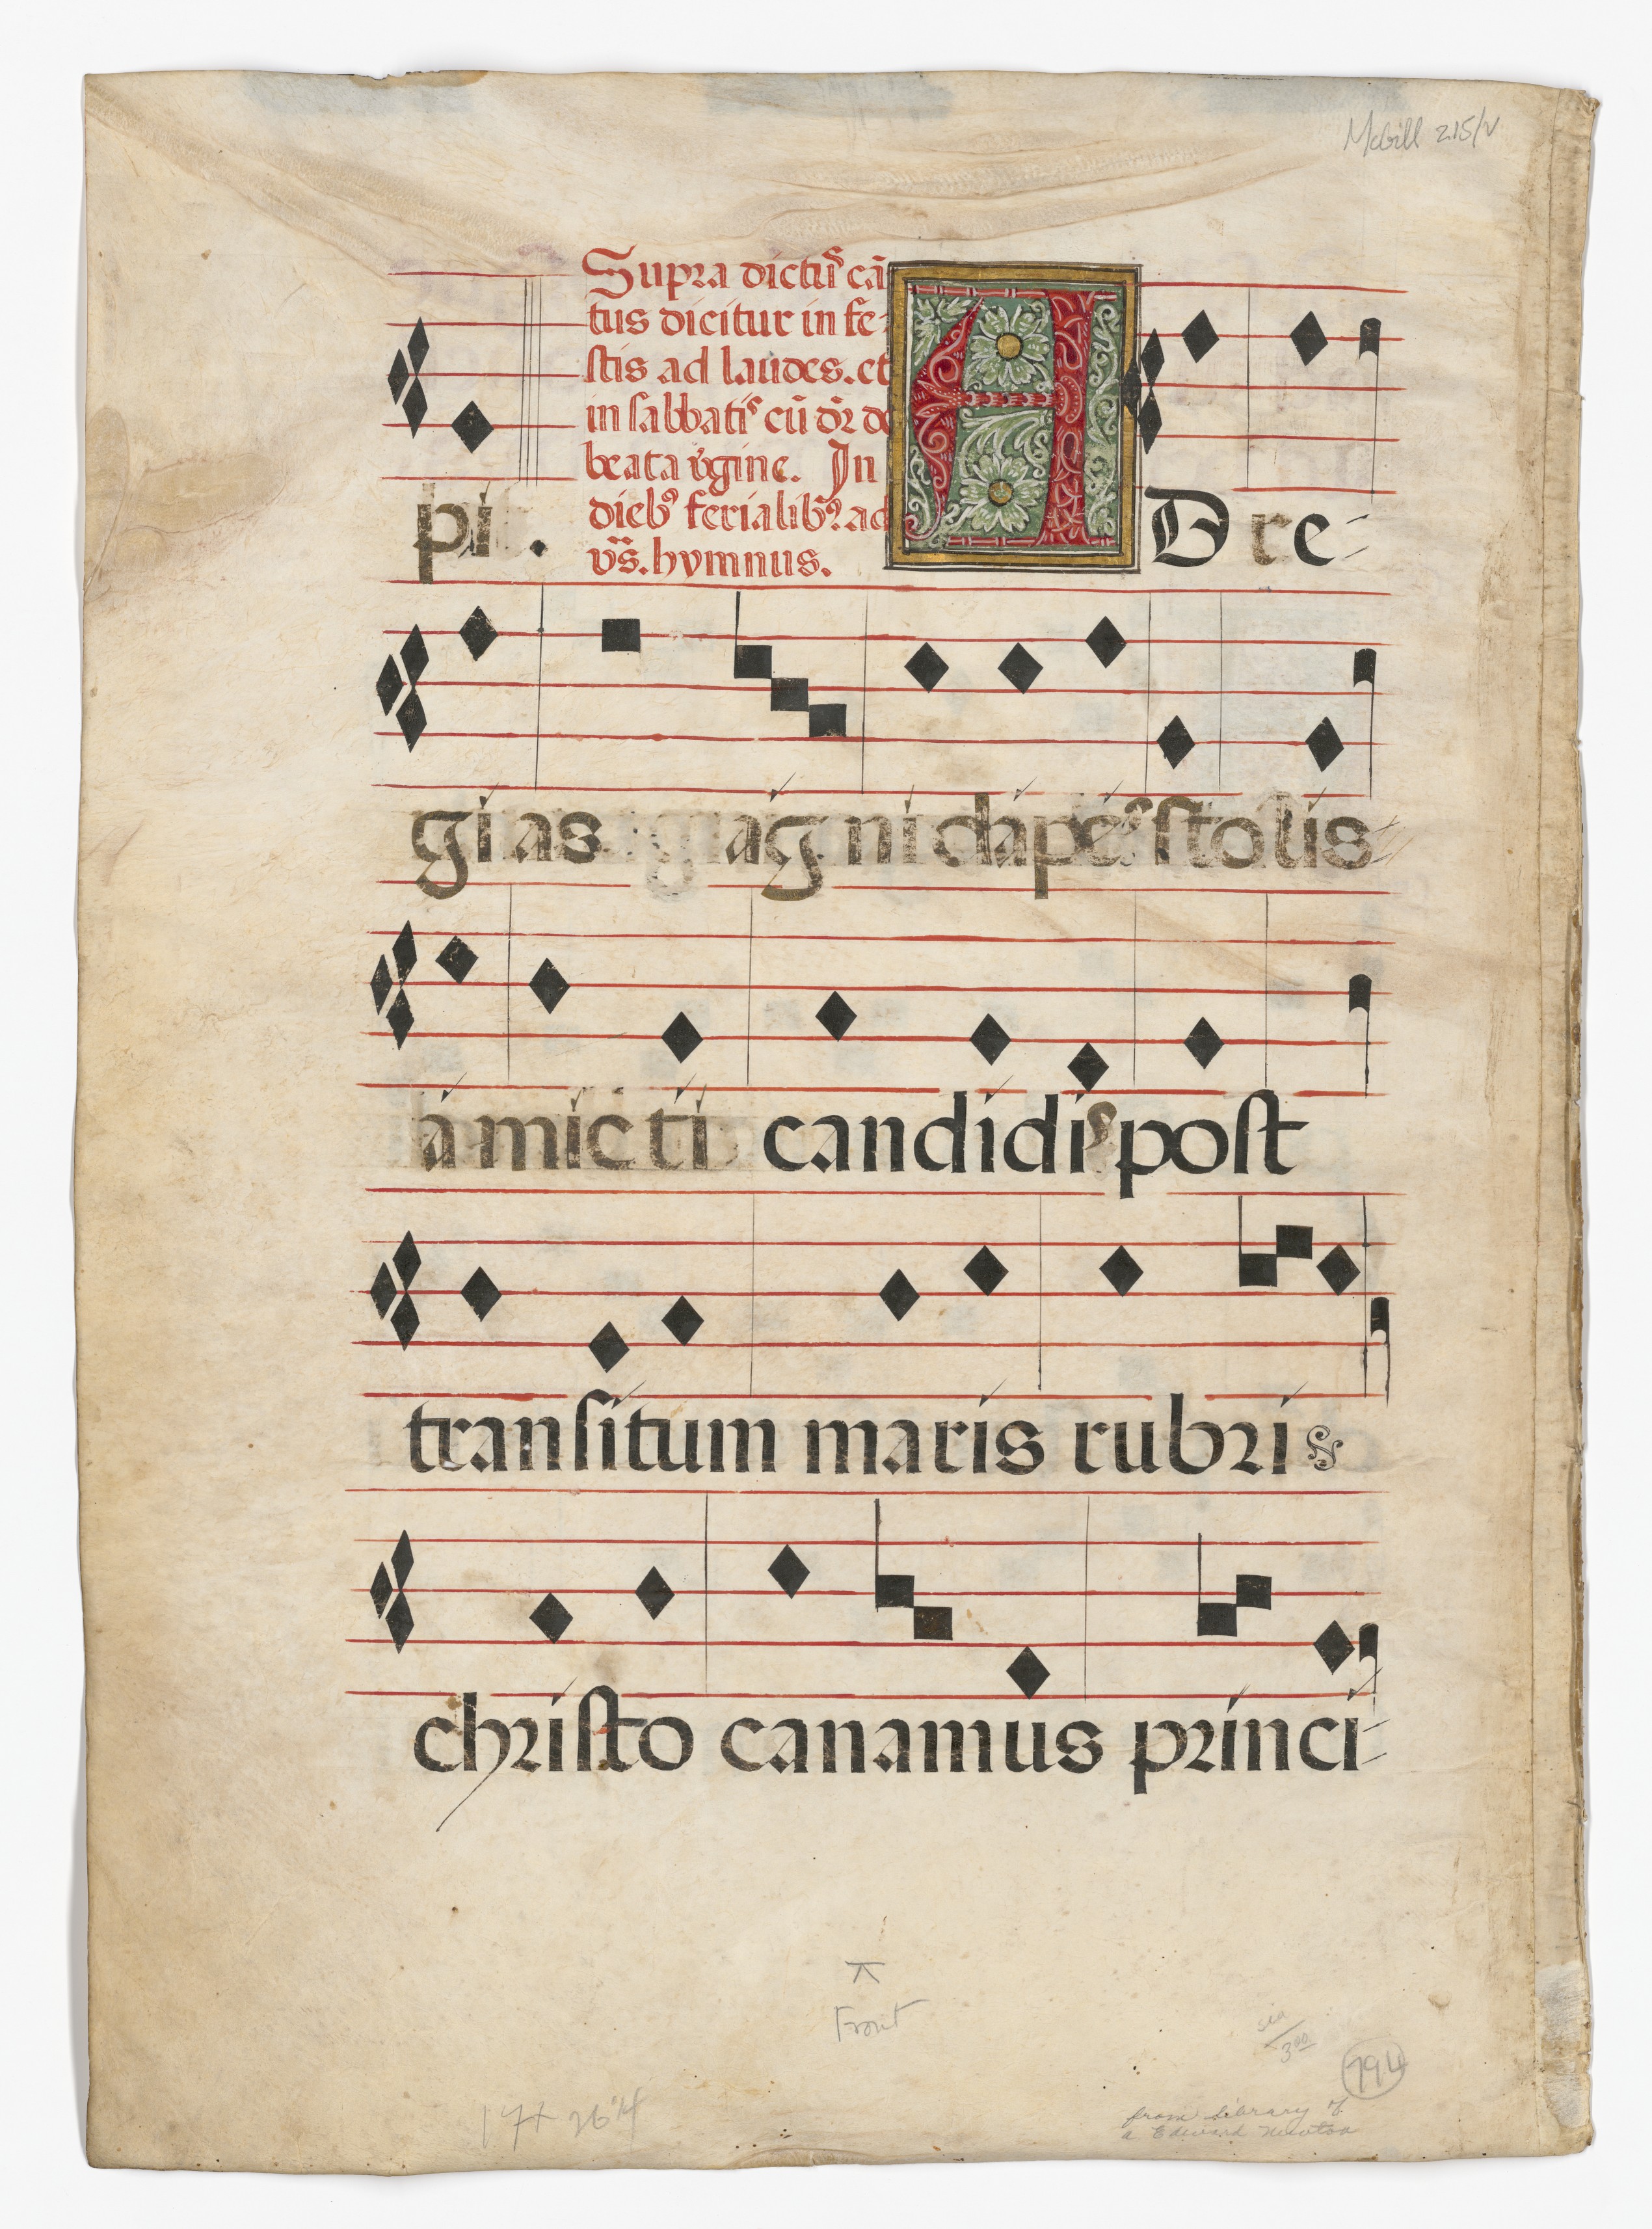 McGill 215/V
Supra dictũˢ cã
tus dicitur in fe-
stis ad laudes. et
in sabbatiˢ cũ or̃ de
beata v̓gine. In
dieb⁹ ferialib⁹ ad
vs̃. hymnus.
pi. AD re-
gias agni dapeˢ stolis
amicti candidiˢ post
transitum maris rubri
christo canamus princi-
Front
3⁰⁰
794
17 x 26¼
from Library of
a Edward Newton